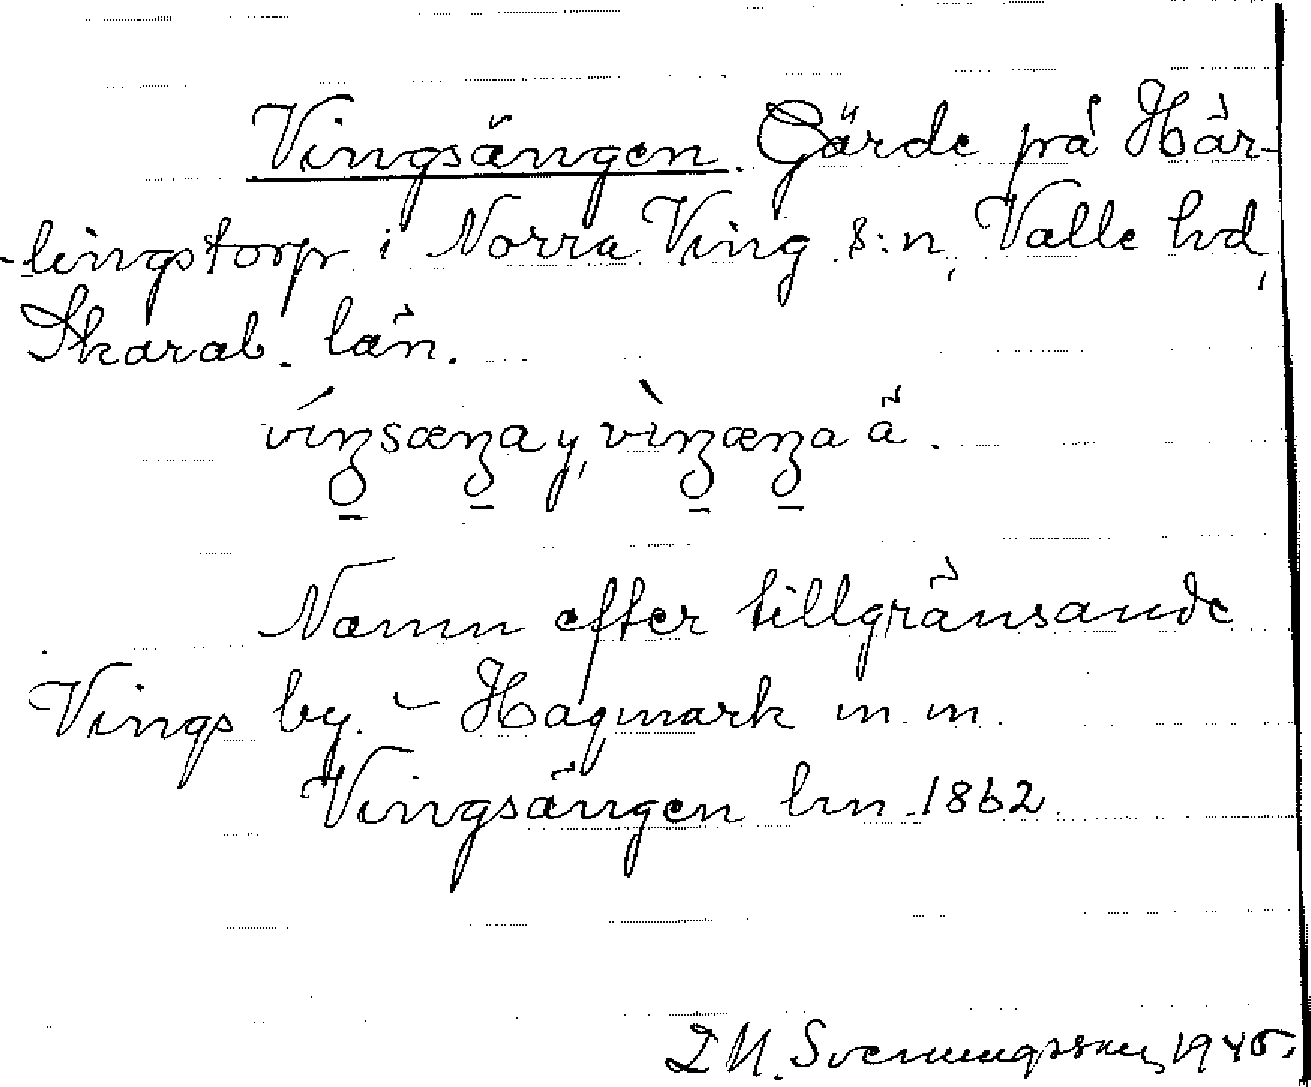 Vingsängen. Gärde på Här-
-lingstorp i Norra Ving s:n, Valle hd,
Skarab. län.
Namn efter tillgränsande
Vings by. – Hagmark m.m.
Vingsängen hm 1862.
Svenungsson 1945.